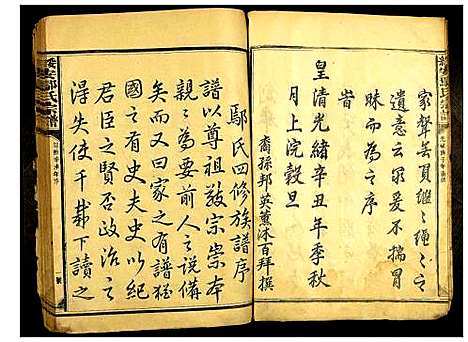 家聲無負繼繼繩繩之
遺意云耳爰不揣冒
昧而為之序
皆
皇清光緒辛丑年季秋
月上浣穀旦
裔孫邦英薰沐百拜撰
鄢氏四修族譜序
譜以尊祖敬宗崇本
為要前人之說備
矣而又曰家之有譜猶
國之有史夫史以紀
君臣之賢否政治之
得失使千載下讀之